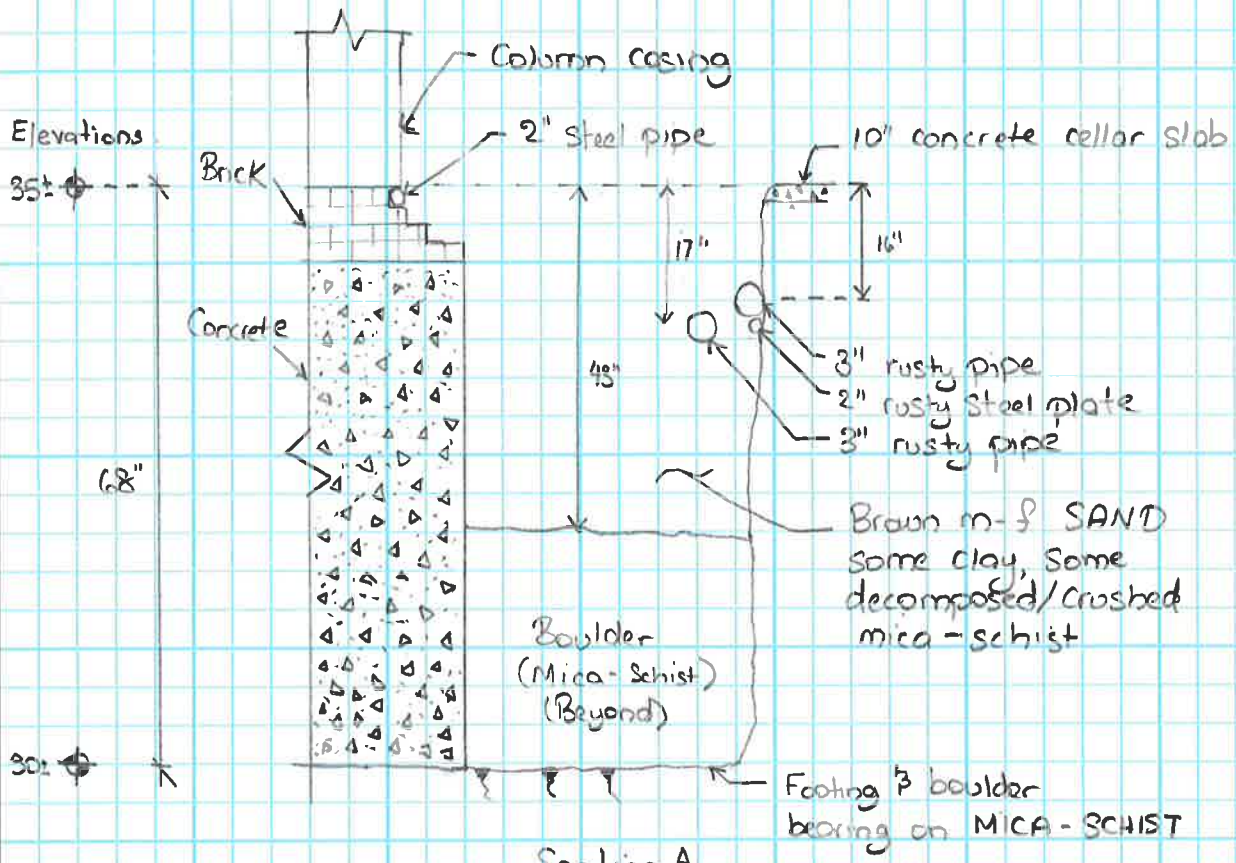 Column casing
Elevations
2" Steel pipe
10" concrete cellar slab
35±
Brick
17"
16"
Concrete
3" rusty pipe
2" rusty steel plate
3" rusty pipe
68"
Brown m-f SAND
some clay, some
decomposed/crushed
mica-schist
Boulder
(Mica-Schist)
(Beyond)
30±
Footing & boulder
bearing on MICA-SCHIST
Section A